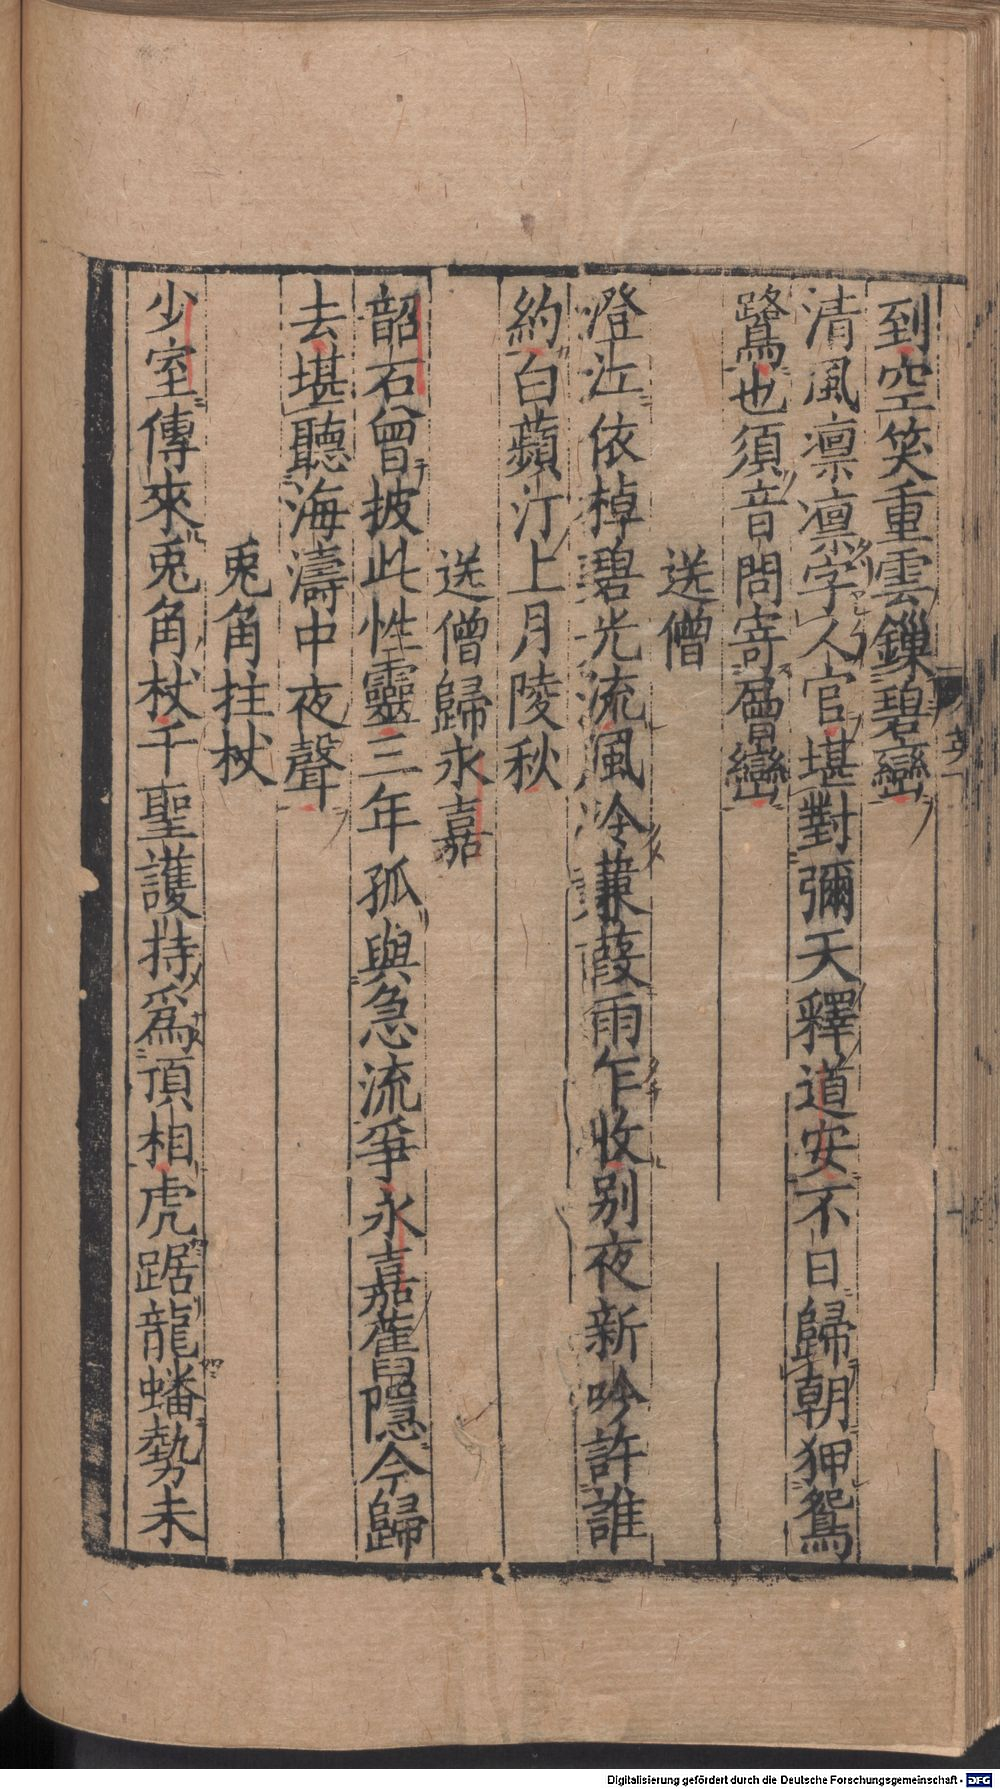 到空笑重雲鏁碧巒
清風凛凛字人官堪對彌天釋道安不日歸朝狎鴛
鷺也須音問寄層巒
送僧
澄江依棹碧光流風冷蒹葭雨乍收别夜新吟許誰
約白蘋汀上月陵秋
送僧歸永嘉
韶石曾披此性靈三年孤與急流爭永嘉舊隱今歸
去堪聽海濤中夜聲
兎角拄杖
少室傳來兎角杖千聖護持爲頂相虎踞龍蟠勢未
Digitalisierung gefördert durch die Deutsche Forschungsgemeinschaft - DFG